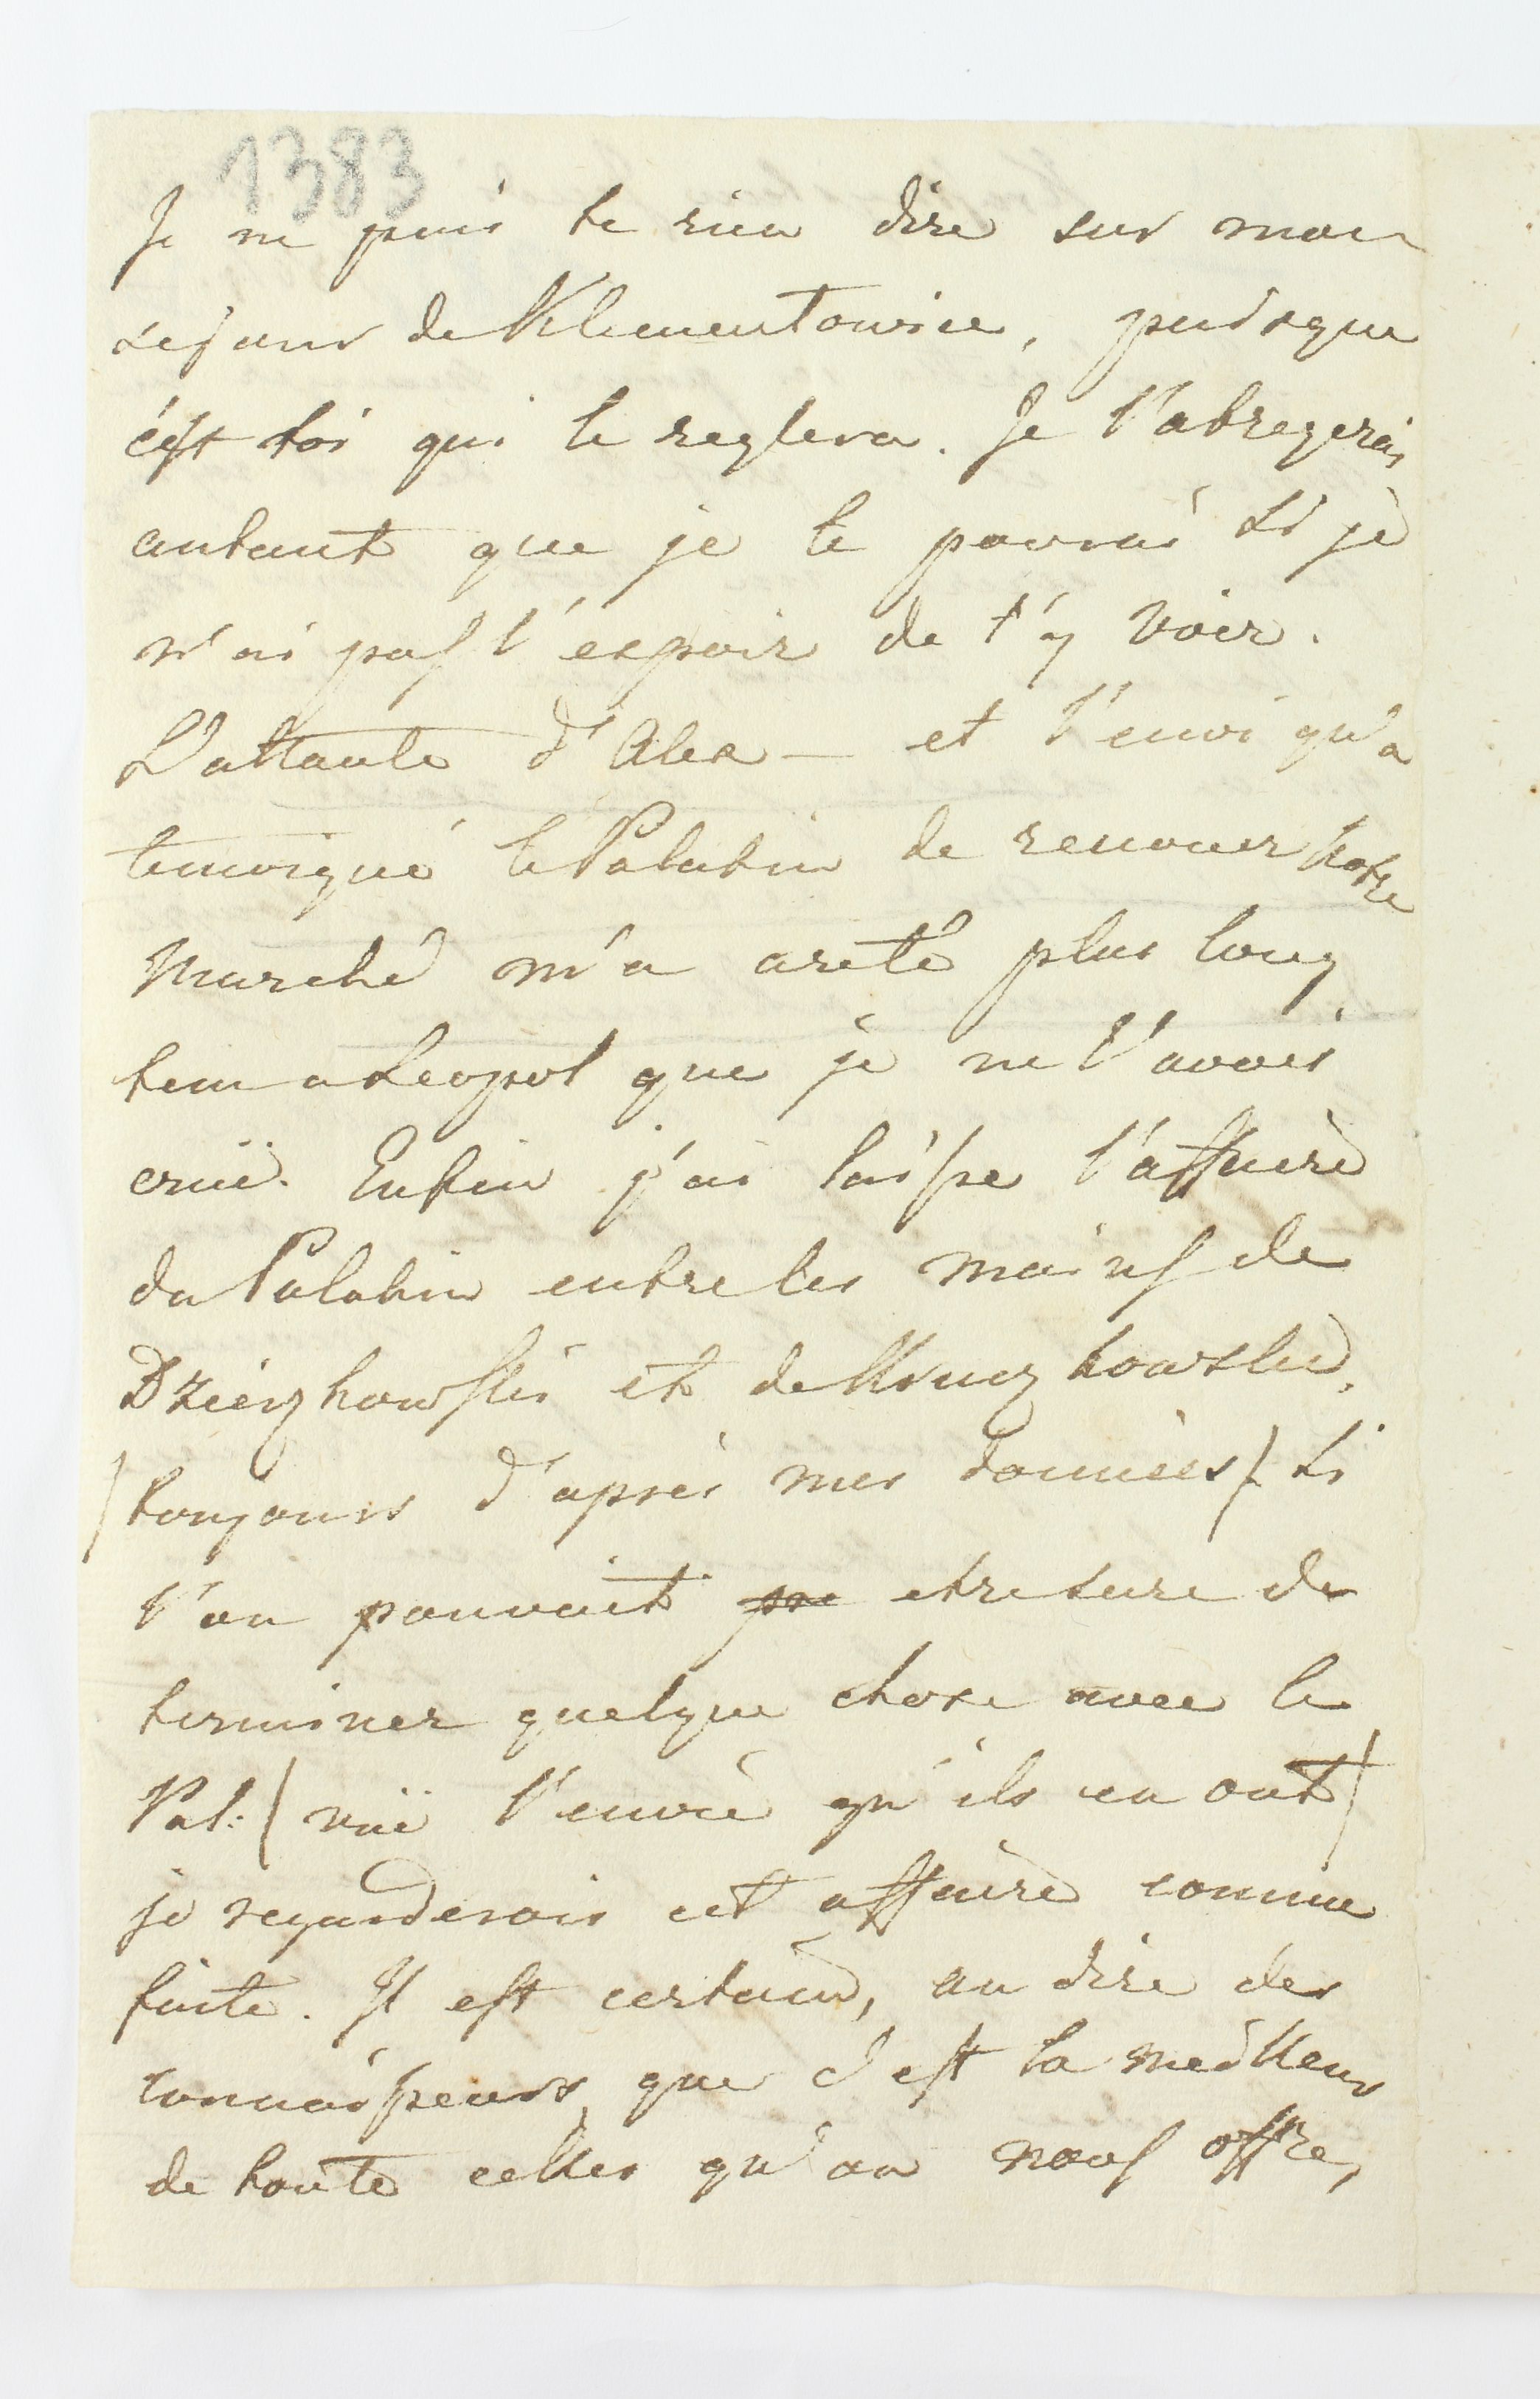 1383
Je ne puis te rien dire sur mon
sejour de Klementowice, puisque
c'est toi qui le reglera. Je l'abregerai
autant que je le pourai si je
n'ai pas l'espoir de t'y voir.
L'attante d'Alex — et l'envi qu'a
temoigné le Palatin de renouer notre
marché m'a areté plus long
tem a Leopol que je ne l'avois
crüe. Enfin j'ai laissé l'affaire
du Palatin entre les mains de
et de
/ toujours d'après mes données / si
l'on pouvait etre sure de
terminer quelque chose avec le
Pal: / vüe l'envie qu'ils en ont /
je regarderois cet affaire comme
faite. Il est certain, au dire des
connaisseurs, que c'est la meilleur
de toute celles qu'on nous offre,